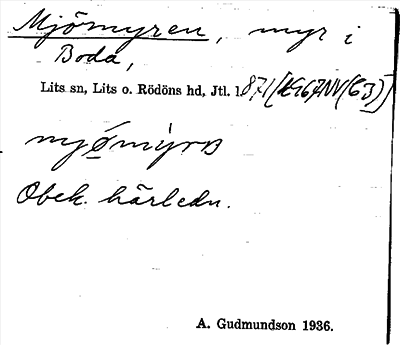 Mjömyren, myr i
Boda,
Lits sn, Lits o. Rödöns hd, Jtl. 1871 [19G7NV(G3)]
Obek. härledn.
A. Gudmundson 1936.